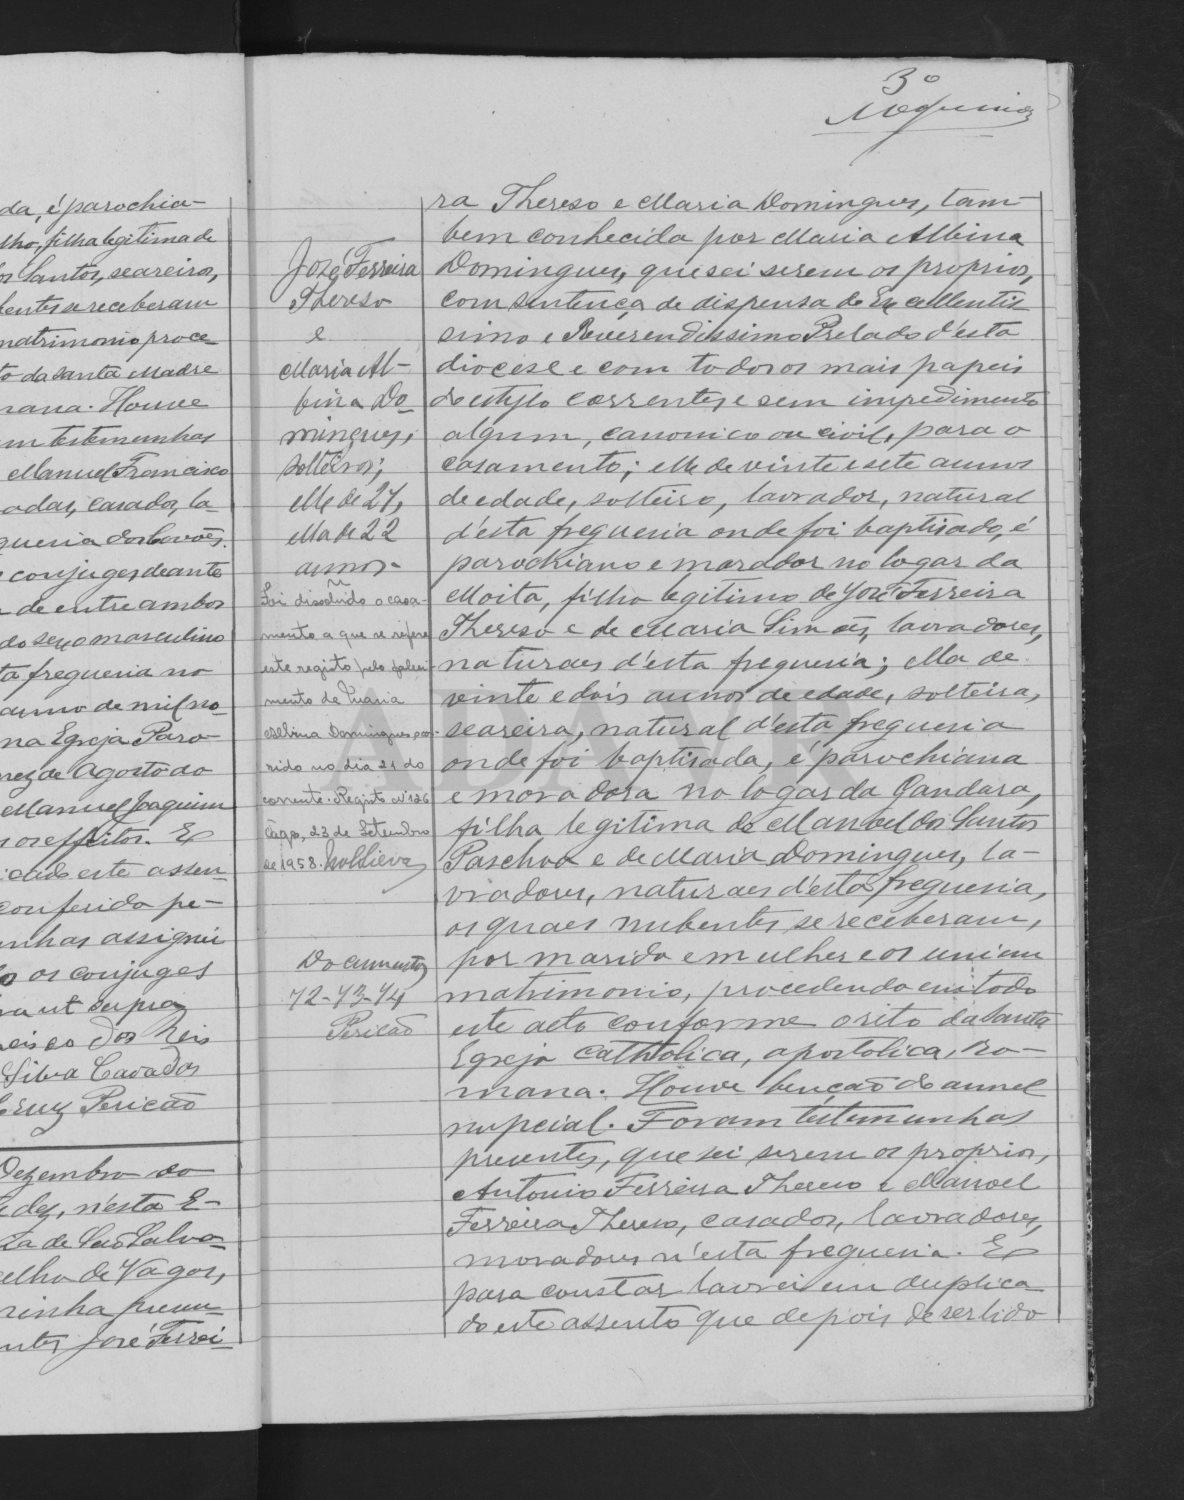 da, é parochia-
lho, filha legitima de
os Santos, seareiros,
bentes se receberam
matrimonio proce-
to da Santa Madre
mana. Houve
am testemunhas
Manuel Francisco
adas, casados, la-
guesia dos Covões.
conjuges deante
de entre ambos
do sexo masculino
ta freguesia no
anno de mil no-
na Egreja Paro-
mez de Agosto do
Manuel Joaquim
os effeitos. E
cado este assen-
conferido pe-
unhas assignei
o os conjuges
ra ut supra
cisco dos Reis
Silva Cavadas
Cruz Pericão
Dezembro do
des, n'esta E-
za de São Salva-
celho de Vagos,
rinha presen-
ntes José Ferrei-
3º
José Ferreira
Thereso
e
Maria Al-
bina Do-
mingues,
solteiros;
elle de 27,
ella de 22
annos.
Foi dissolvido o casa-
mento a que se refere
este registo pelo faleci-
mento de Maria
Albina Domingues ocor-
rido no dia 21 do
corrente. Registo nº 126
Vagos, 23 de Setembro
de 1958.
Documentos
72-73-74
Pericão
ra Thereso e Maria Domingues, tam-
bem conhecida por Maria Albina
Domingues, que sei serem os proprios,
com sentença de dispensa do Excellentis
simo e Reverendissimo Prelado d'esta
diocese e com todos os mais papeis
do estylo correntes e sem impedimento
algum, canonico ou civil, para o
casamento; elle de vinte e sete annos
de edade, solteiro, lavrador, natural
d'esta freguesia onde foi baptisado, é
parochiano e morador no logar da
Moita, filho legitimo de José Ferreira
Thereso e de Maria Simões, lavradores,
naturaes d'esta freguesia; ella de
vinte e dois annos de edade, solteira,
seareira, natural d'esta freguesia
onde foi baptisada, é parochiana
e moradora no logar da Gandara,
filha legitima de Manoel dos Santos
Paschoa e de Maria Domingues, la-
vradores, naturaes d'esta freguesia,
os quaes nubentes se receberam,
por marido e mulher e os uni em
matrimonio, procedendo em todo
este acto conforme o rito da Santa
Egreja Catholica, apostolica, ro-
mana. Houve benção do annel
nupcial. Foram testemunhas
presentes, que sei serem os proprios,
Antonio Ferreira Thereso e Manoel
Ferreira Thereso, casados, lavradores,
moradores n'esta freguesia. E
para constar lavrei em duplica
do este assento que depois de ser lido